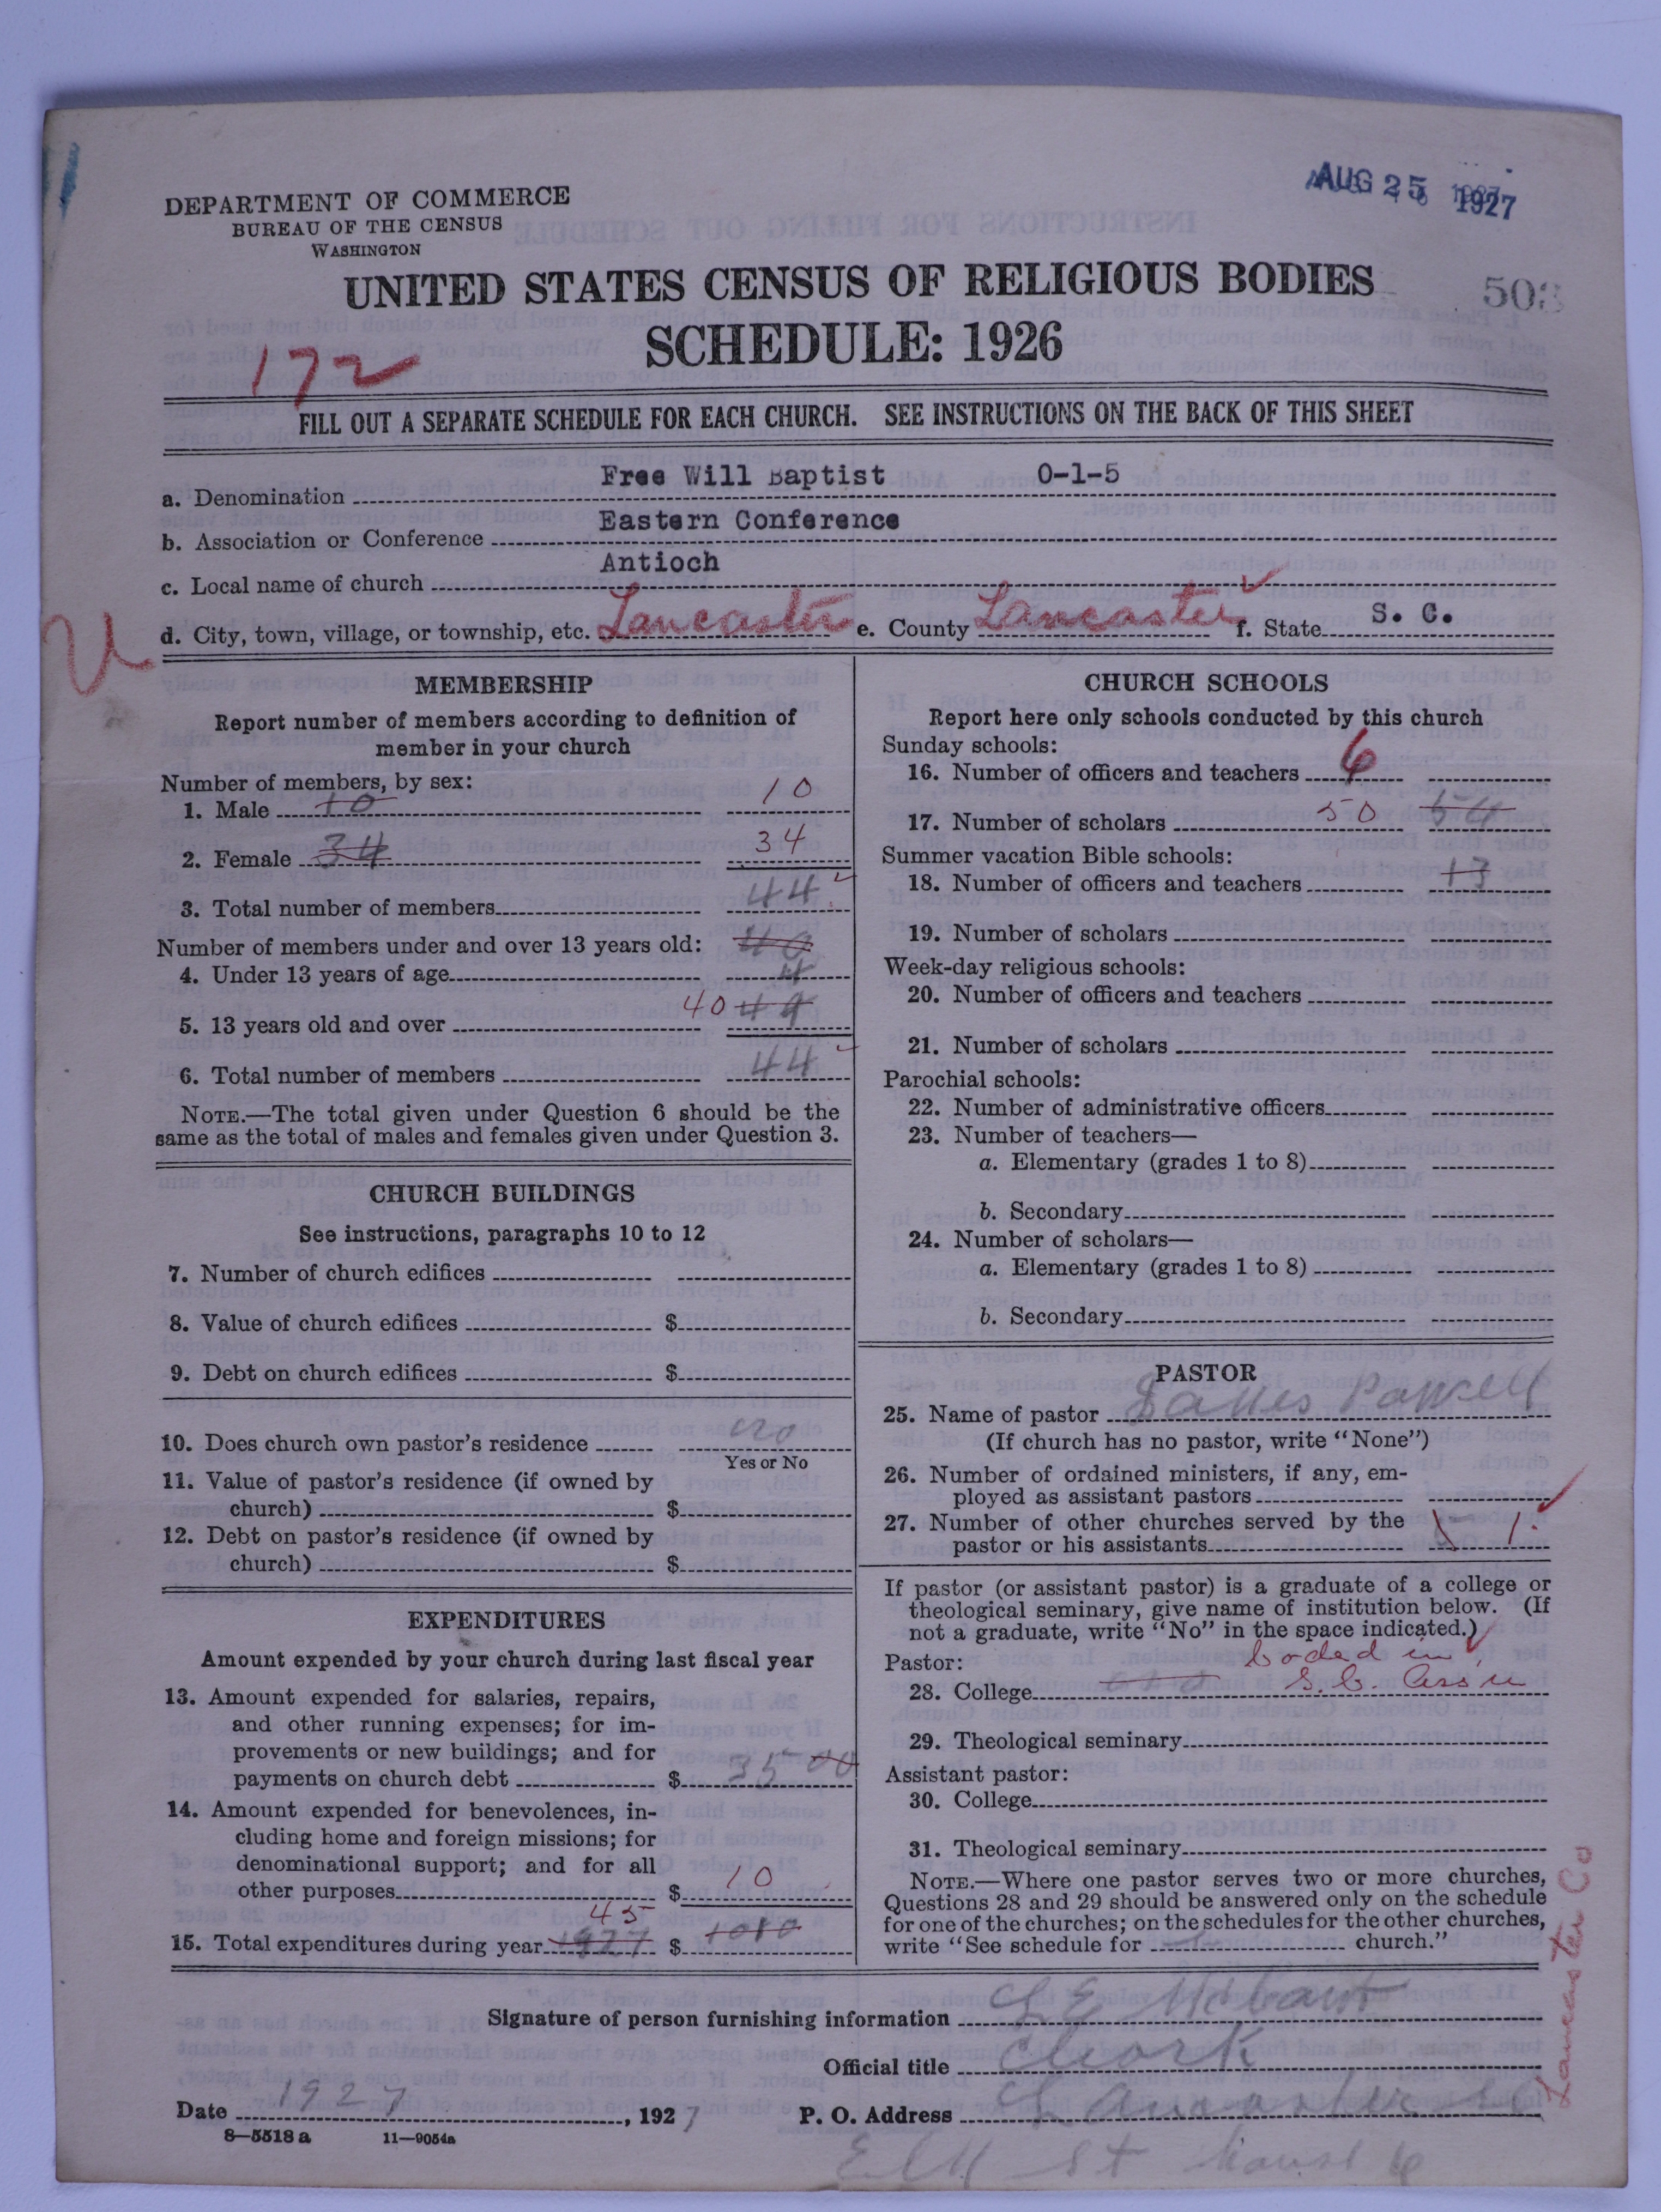 AUG 25 1927
DEPARTMENT OF COMMERCE
BUREAU OF THE CENSUS
WASHINGTON
UNITED STATES CENSUS OF RELIGIOUS BODIES
503
SCHEDULE: 1926
172
FILL OUT A SEPARATE SCHEDULE FOR EACH CHURCH. SEE INSTRUCTIONS ON THE BACK OF THIS SHEET
a. Denomination Free Will Baptist 0-1-5
b. Association or Conference Eastern Conference
c. Local name of church Antioch
d. City, town, village, or township, etc. Lancaster e. County Lancaster f. State S. C.
MEMBERSHIP
Report number of members according to definition of
member in your church
Number of members, by sex:
1. Male 10 10
2. Female 34 34
3. Total number of members 44
Number of members under and over 13 years old: 40
4. Under 13 years of age 4
5. 13 years old and over 40 44
6. Total number of members 44
NOTE.—The total given under Question 6 should be the
same as the total of males and females given under Question 3.
CHURCH BUILDINGS
See instructions, paragraphs 10 to 12
7. Number of church edifices
8. Value of church edifices $
9. Debt on church edifices $
10. Does church own pastor's residence no
Yes or No
11. Value of pastor's residence (if owned by
church) $
12. Debt on pastor's residence (if owned by
church) $
EXPENDITURES
Amount expended by your church during last fiscal year
13. Amount expended for salaries, repairs,
and other running expenses; for im-
provements or new buildings; and for
payments on church debt $ 35 00
14. Amount expended for benevolences, in-
cluding home and foreign missions; for
denominational support; and for all
other purposes $ 10
45
15. Total expenditures during year 1927 $
CHURCH SCHOOLS
Report here only schools conducted by this church
Sunday schools:
16. Number of officers and teachers 6
17. Number of scholars 50 54
Summer vacation Bible schools:
18. Number of officers and teachers 13
19. Number of scholars
Week-day religious schools:
20. Number of officers and teachers
21. Number of scholars
Parochial schools:
22. Number of administrative officers
23. Number of teachers—
a. Elementary (grades 1 to 8)
b. Secondary
24. Number of scholars—
a. Elementary (grades 1 to 8)
b. Secondary
PASTOR
25. Name of pastor James Powell
(If church has no pastor, write "None")
26. Number of ordained ministers, if any, em-
ployed as assistant pastors
27. Number of other churches served by the
pastor or his assistants 1.
If pastor (or assistant pastor) is a graduate of a college or
theological seminary, give name of institution below. (If
not a graduate, write "No" in the space indicated.)
Pastor: Coded in
28. College S. C. Ass'n
29. Theological seminary
Assistant pastor:
30. College
31. Theological seminary
NOTE.—Where one pastor serves two or more churches,
Questions 28 and 29 should be answered only on the schedule
for one of the churches; on the schedules for the other churches,
write "See schedule for church."
Lancaster Co
Signature of person furnishing information
Official title Cleark
Date 1927, 1927 P. O. Address Lancaster SC
8—5518 a 11—9054a
St house 6